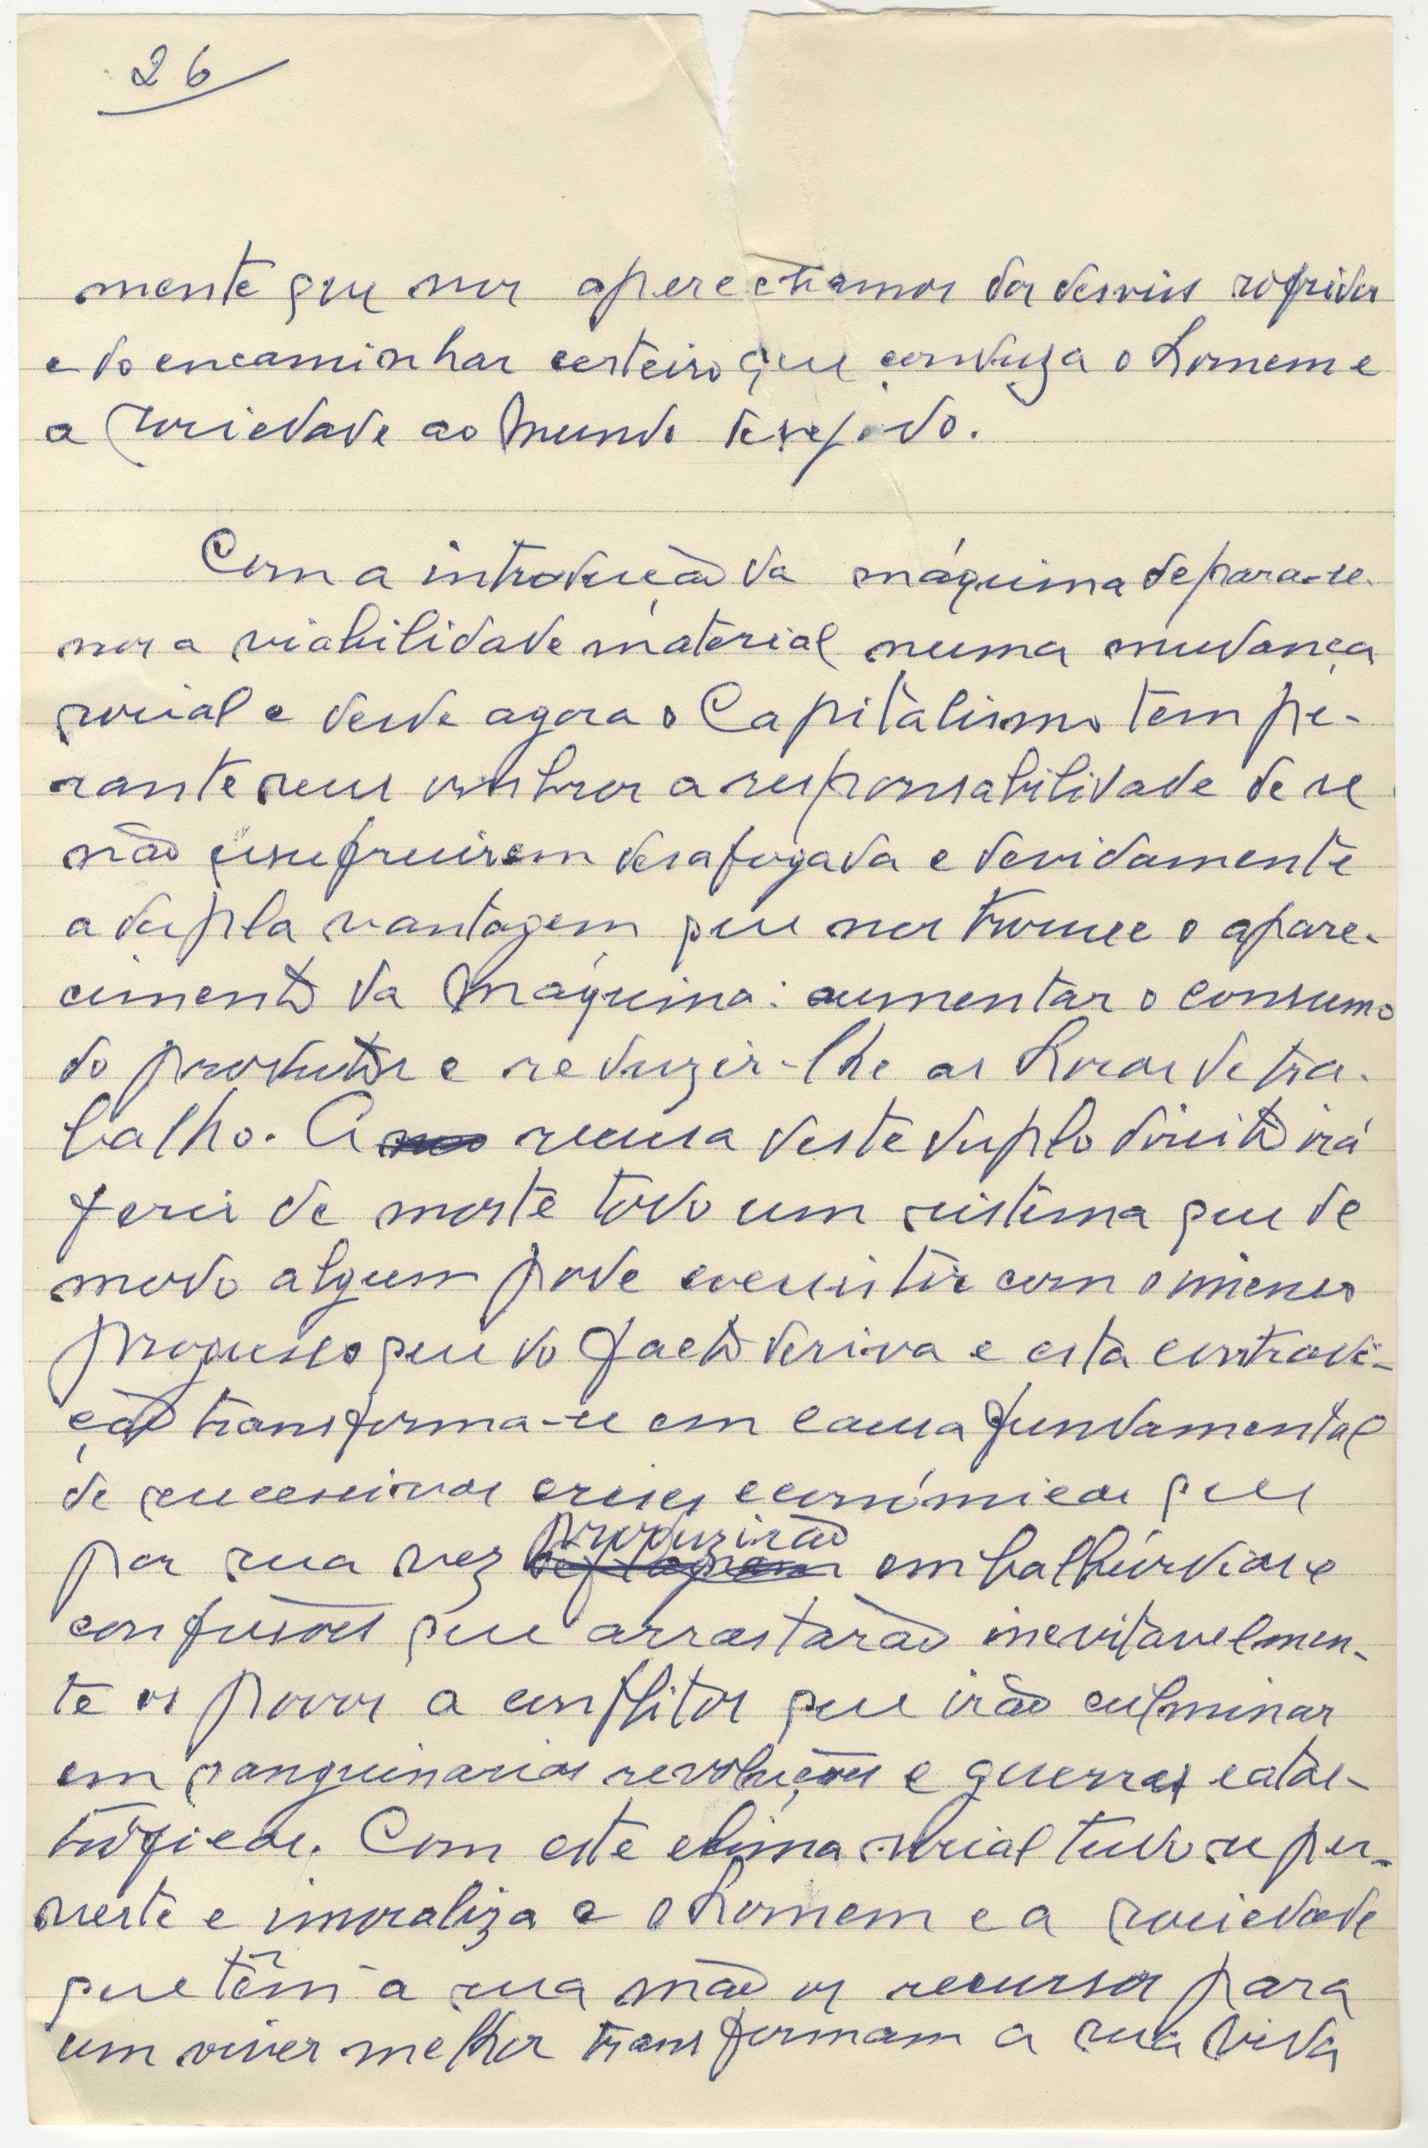 26
mente que nos apercebamos dos desvios sofridos
e do encaminhar certeiro que conduza o homem e
a sociedade ao Mundo desejado.
Com a introdução da máquina depara-se-
nos a viabilidade material numa mudança
social e desde agora o Capitalismo tem pe-
rante seus ombros a responsabilidade de se
não usufruirem desafogada e devidamente
a dupla vantagem que nos trouxe o apare-
cimento da Máquina: aumentar o consumo
do produtor e reduzir-lhe as horas de tra-
balho. A recusa deste duplo direito irá
ferir de morte todo um sistema que de
modo algum pode coexistir com o imenso
progresso que do facto deriva e esta contradi-
ção transforma-se em causa fundamental
de sucessivas crises económicas que
por sua vez produzirão embalbúrdias e
confusões que arrastarão inevitavelmen-
te os povos a conflitos que irão culminar
em sanguinarias revoluções e guerras catas-
tróficas. Com este clima social tudo se per-
verte e imoraliza e o homem e a sociedade
que têm à sua mão os recursos para
um viver melhor transformam a sua vida